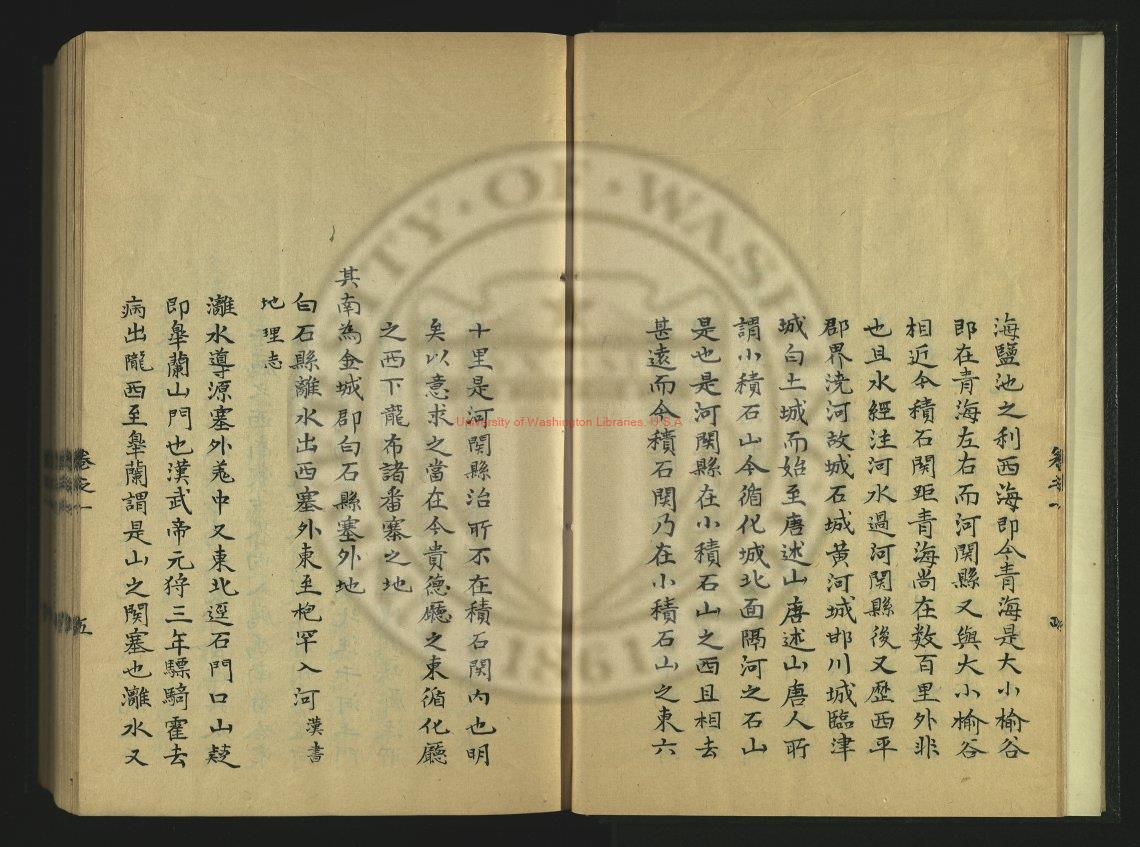 海鹽池之利西海即今青海是大小榆谷
即在青海左右而河関縣又與大小榆谷
相近今積石関距青海尚在数百里外非
也且水經注河水過河関縣後又歴西平
郡界澆河故城石城黄河城邯川城臨津
城白土城而始至唐述山唐述山唐人所
謂小積石山今循化城北面隔河之石山
是也是河関縣在小積石山之西且相去
甚遠而今積石関乃在小積石山之東六
十里是河関縣治所不在積石関内也明
矣以意求之當在今貴德廳之東循化廳
之西下龍布諸番寨之地
其南為金城郡白石縣塞外地
白石縣離水出西塞外東至枹罕入河漢書
地理志
灕水導源塞外羌中又東北逕石門口山
即皐蘭山門也漢武帝元狩三年驃騎霍去
病出隴西至皐蘭謂是山之関塞也灕水又
卷之一
五
UNIVERSITY OF WASHINGTON
1861
University of Washington Libraries, U.S.A